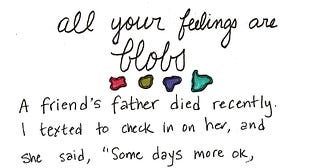 all your feelings are
blobs
A friend's father died recently.
I texted to check in on her, and
she said, "Some days more ok,